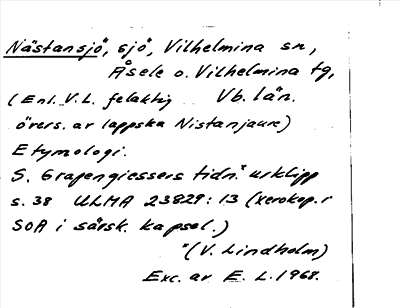 Nästansjö, sjö, Vilhelmina sn,
Åsele o. Vilhelmina tg,
(Enl. V.L. felaktig Vb. län.
övers. av lappska Nistanjaure)
Etymologi.
S. Grapengiessers tidn.urklipp
s. 38 ULMA 23829:13 (xerokop. i
SOA i särsk. kapsel.)
(V. Lindholm)
Exc. av E. L. 1968.